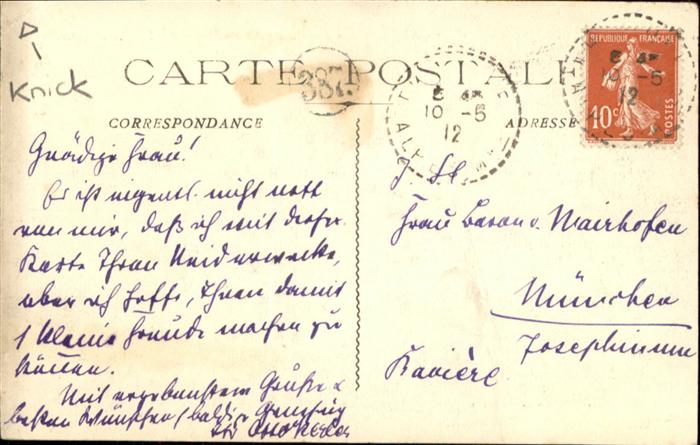 Knick
CARTE POSTALE
387.
RÉPUBLIQUE FRANÇAISE
10c
POSTES
10 -5
12
10 -5
12
CORRESPONDANCE
ADRESSE
Gnädige Frau!
Es ist eigentl. nicht nett
von mir, daß ich mit dieser
Karte Ihren Neid erwecke,
aber ich hoffe, Ihnen damit
1 kleine Freude machen zu
können.
Mit ergebenstem Gruße u
besten Wünschen / baldige Genesung
Ihr Otto
Frau Baron v. Mairhofen
München
Josephinum
Bavière